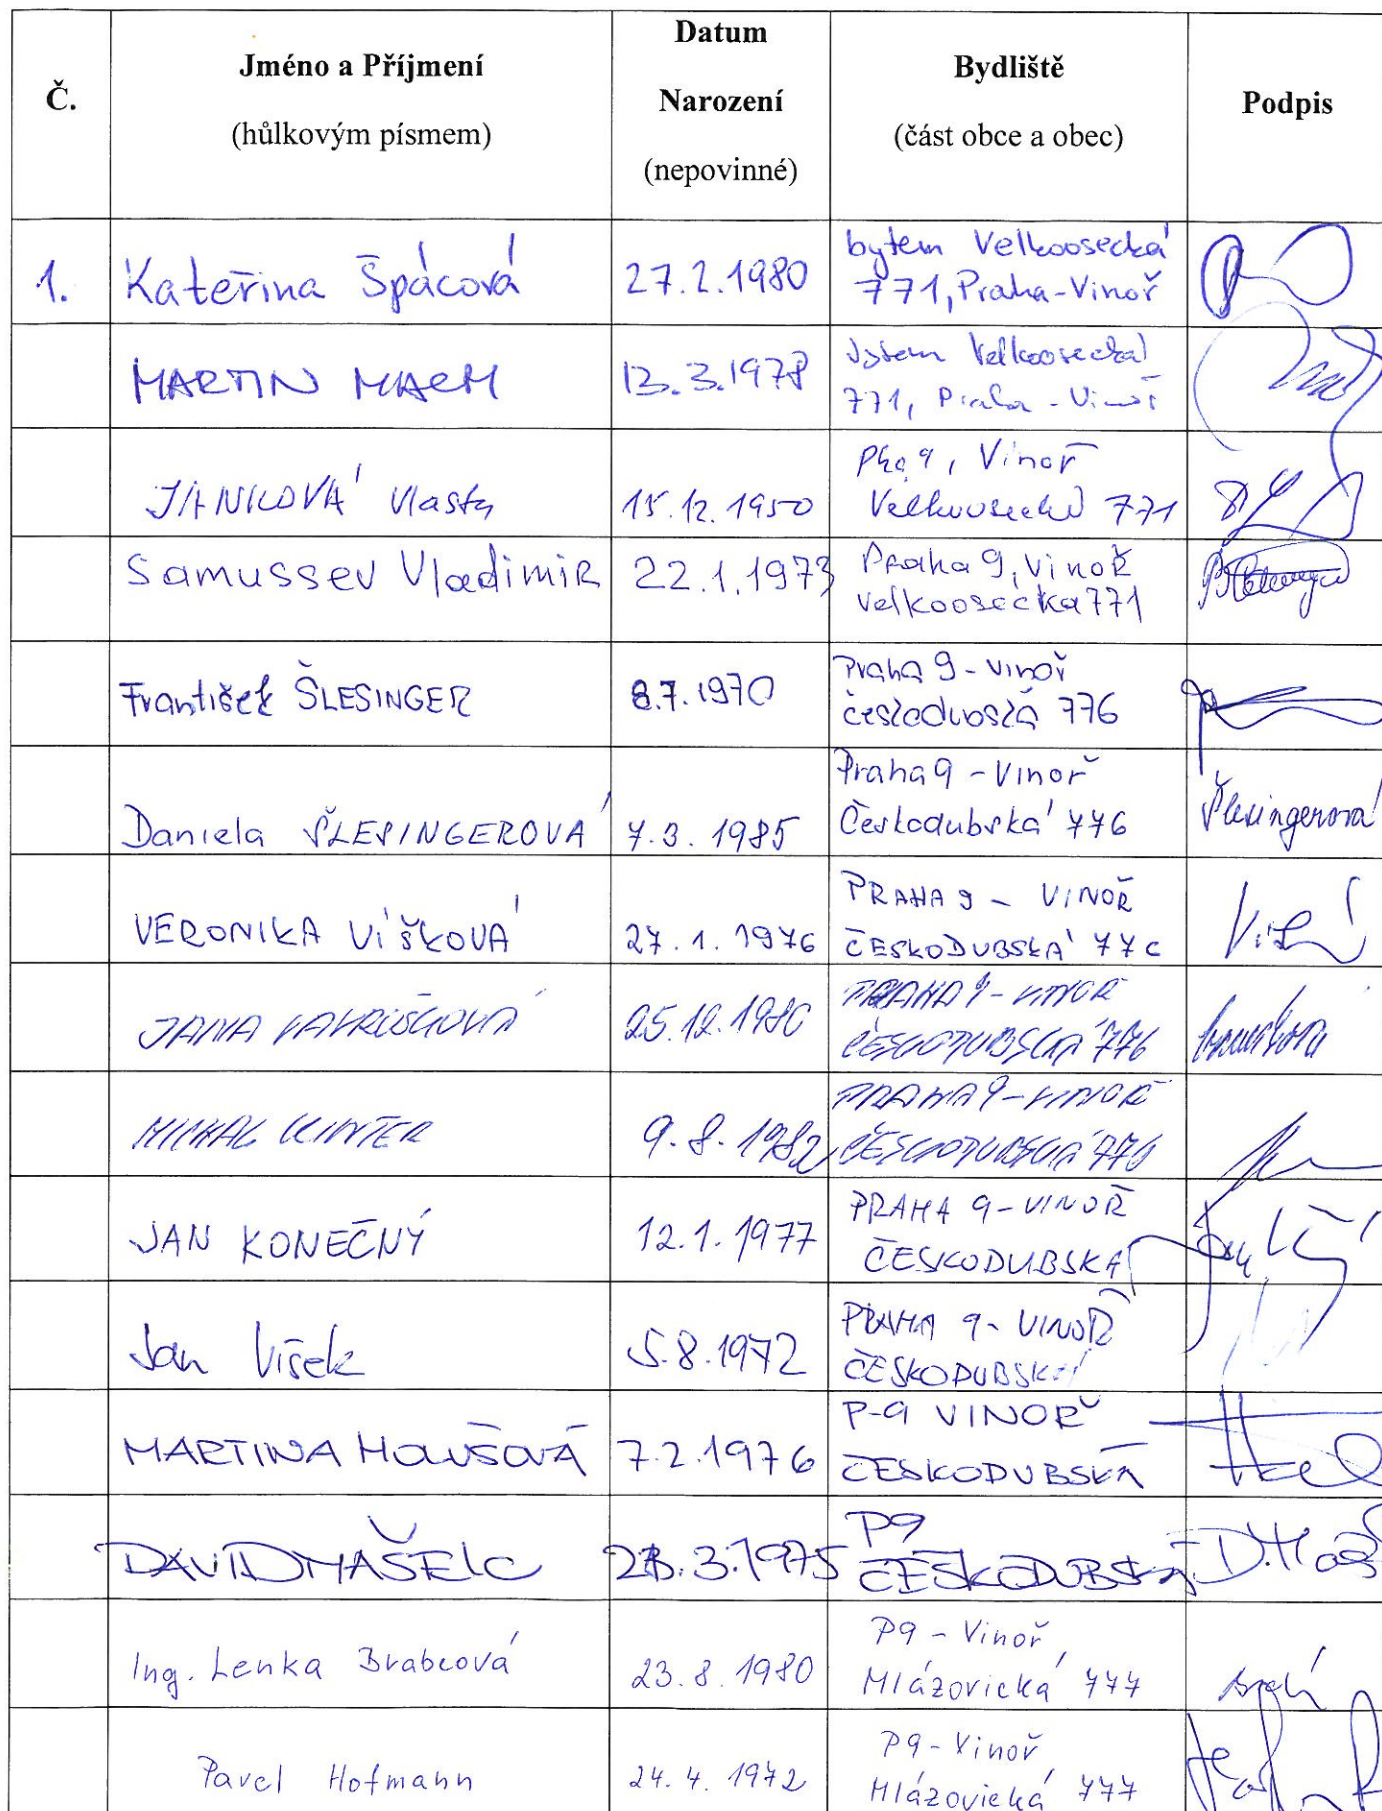 Č.
Jméno a Příjmení
(hůlkovým písmem)
Datum
Narození
(nepovinné)
Bydliště
(část obce a obec)
Podpis
1.
Kateřina Špácová
27.2.1980
bytem Velkoosecká
771, Praha-Vinoř
MARTIN MACH
13.3.1978
bytem Velkoosecká
771, Praha - Vinoř
JANKOVÁ Vlasta
15.12.1950
Pha 9, Vinoř
Velkoosecká 771
Samussev Vladimir
22.1.1973
Praha 9, Vinoř
velkoosecka 771
František ŠLESINGER
8.7.1970
Praha 9 - Vinoř
českodubská 776
Daniela ŠLESINGEROVÁ
7.3.1985
Praha 9 - Vinoř
Českodubská 776
Šlesingerová
VERONIKA VÍŠKOVÁ
27.1.1976
PRAHA 9 - VINOŘ
ČESKODUBSKÁ 776
JANA
25.12.1980
PRAHA 9 - VINOŘ
ČESKODUBSKÁ 776
MICHAL
9.8.1982
PRAHA 9 - VINOŘ
ČESKODUBSKÁ 776
JAN KONEČNÝ
12.1.1977
PRAHA 9 - VINOŘ
ČESKODUBSKÁ
Jan Víšek
5.8.1972
PRAHA 9 - VINOŘ
ČESKODUBSKÁ
MARTINA HOLUŠOVÁ
7.2.1976
P-9 VINOŘ
ČESKODUBSKÁ
DAVID MAŠEK
3.1975
P9
ČESKODUBSKÁ
Ing. Lenka Brabcová
23.8.1980
P9 - Vinoř,
Mlázovická 777
Pavel Hofmann
24.4.1972
P9 - Vinoř
Mlázovická 777